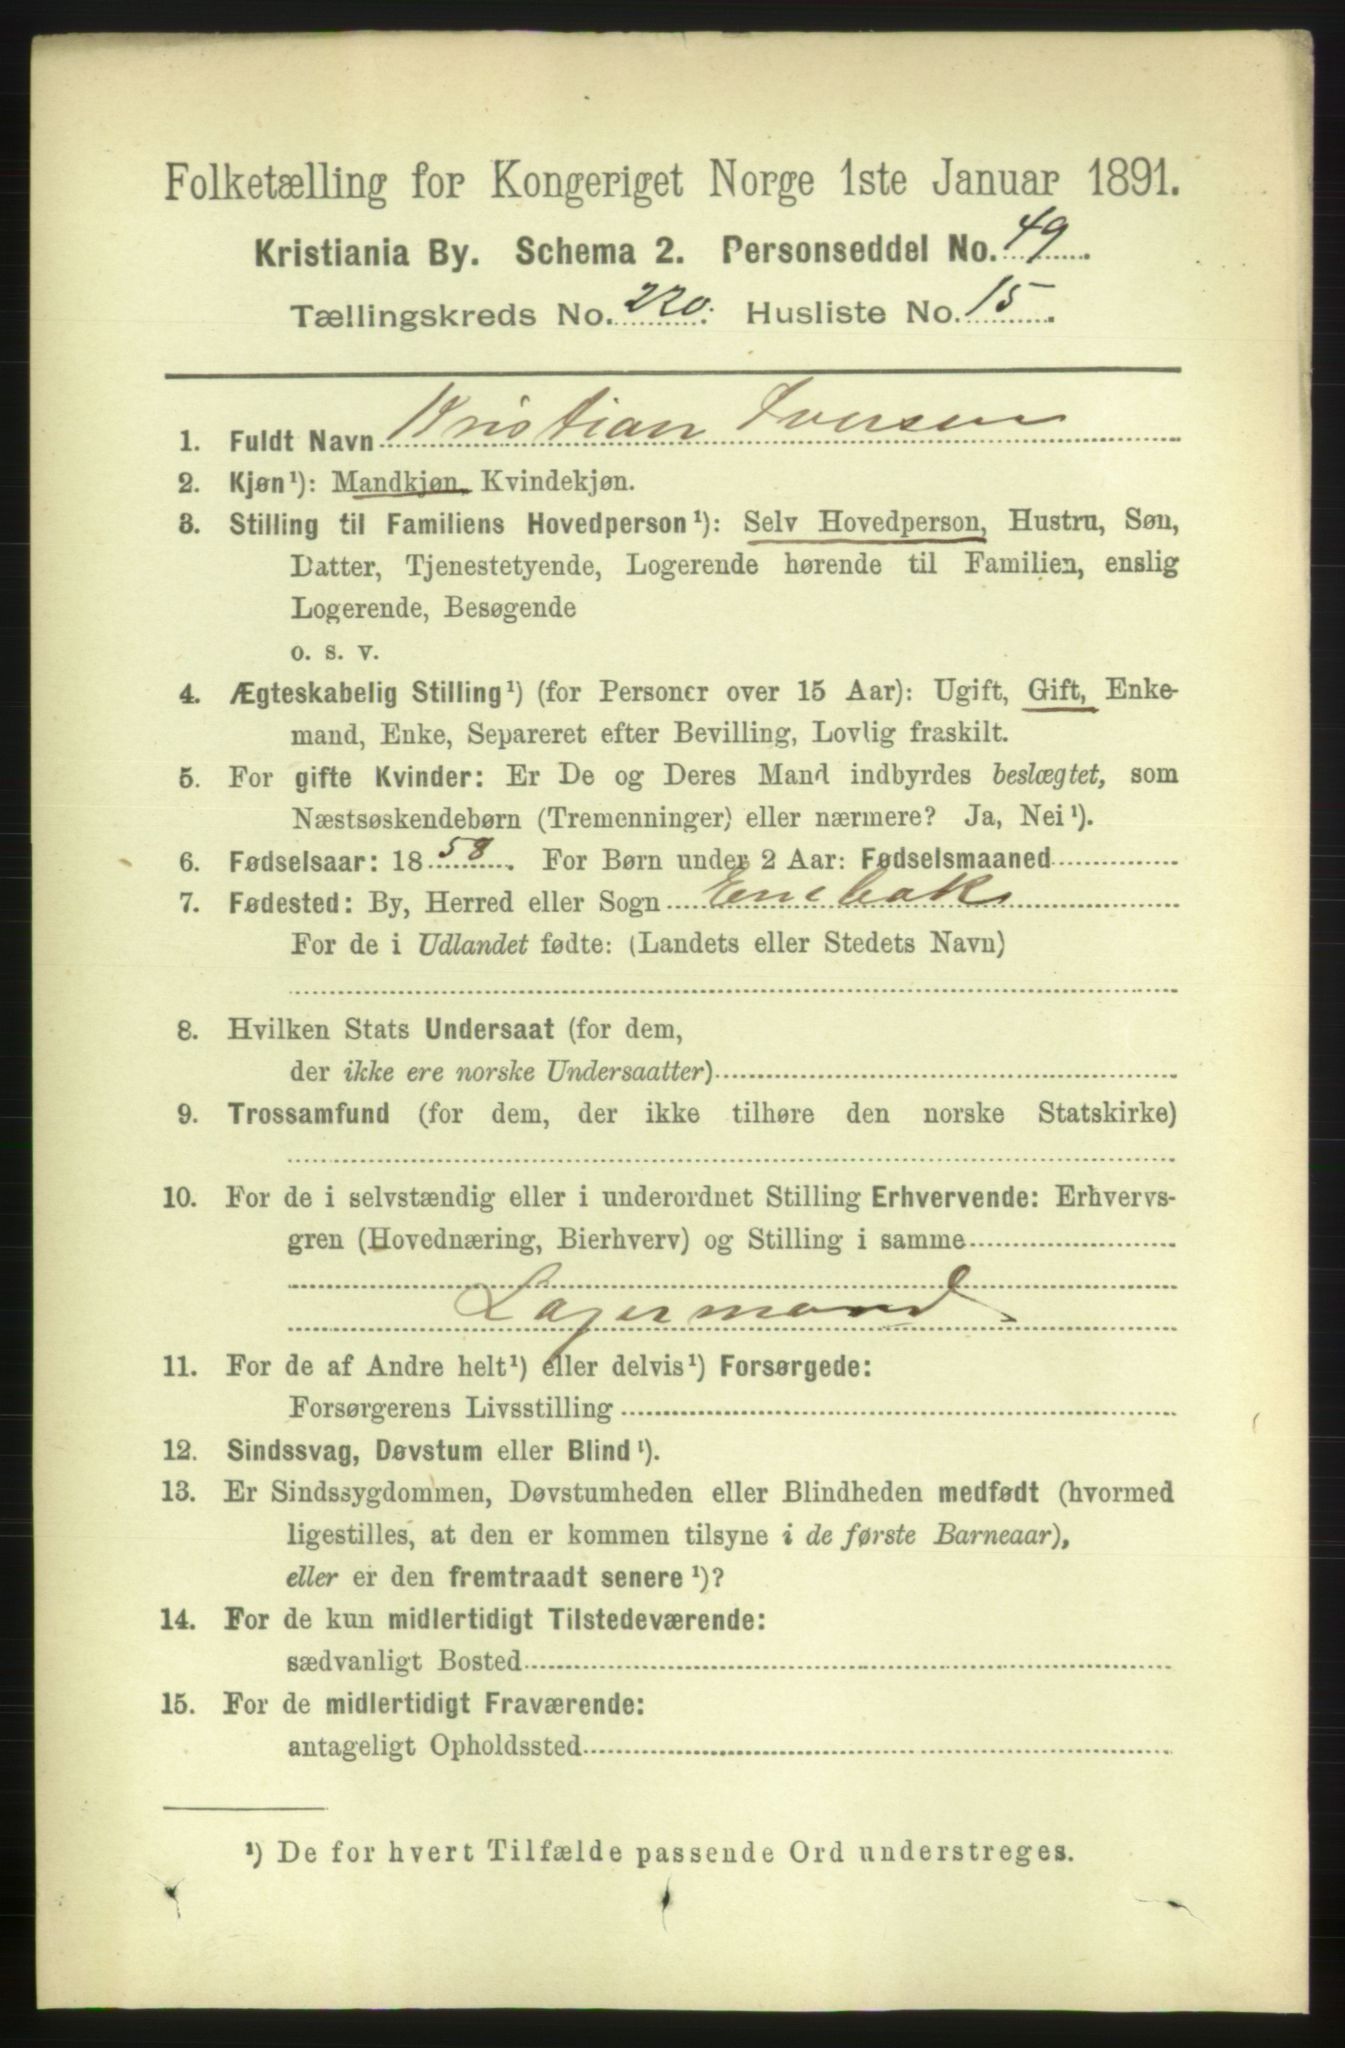 Folketælling for Kongeriget Norge 1ste Januar 1891.
Kristiania By. Schema 2. Personseddel No. 49
Tællingskreds No. 220. Husliste No. 15
1. Fuldt Navn Kristian Iversen
2. Kjøn¹): Mandkjøn, Kvindekjøn.
3. Stilling til Familiens Hovedperson¹): Selv Hovedperson, Hustru, Søn,
Datter, Tjenestetyende, Logerende hørende til Familien, enslig
Logerende, Besøgende
o. s. v.
4. Ægteskabelig Stilling¹) (for Personer over 15 Aar): Ugift, Gift, Enke-
mand, Enke, Separeret efter Bevilling, Lovlig fraskilt.
5. For gifte Kvinder: Er De og Deres Mand indbyrdes beslægtet, som
Næstsøskendebørn (Tremenninger) eller nærmere? Ja, Nei¹).
6. Fødselsaar: 1858. For Børn under 2 Aar: Fødselsmaaned
7. Fødested: By, Herred eller Sogn Enebak
For de i Udlandet fødte: (Landets eller Stedets Navn)
8. Hvilken Stats Undersaat (for dem,
der ikke ere norske Undersaatter)
9. Trossamfund (for dem, der ikke tilhøre den norske Statskirke)
10. For de i selvstændig eller i underordnet Stilling Erhvervende: Erhvervs-
gren (Hovednæring, Bierhverv) og Stilling i samme
Lagermand
11. For de af Andre helt¹) eller delvis¹) Forsørgede:
Forsørgerens Livsstilling
12. Sindssvag, Døvstum eller Blind¹).
13. Er Sindssygdommen, Døvstumheden eller Blindheden medfødt (hvormed
ligestilles, at den er kommen tilsyne i de første Barneaar),
eller er den fremtraadt senere¹)?
14. For de kun midlertidigt Tilstedeværende:
sædvanligt Bosted
15. For de midlertidigt Fraværende:
antageligt Opholdssted
¹) De for hvert Tilfælde passende Ord understreges.